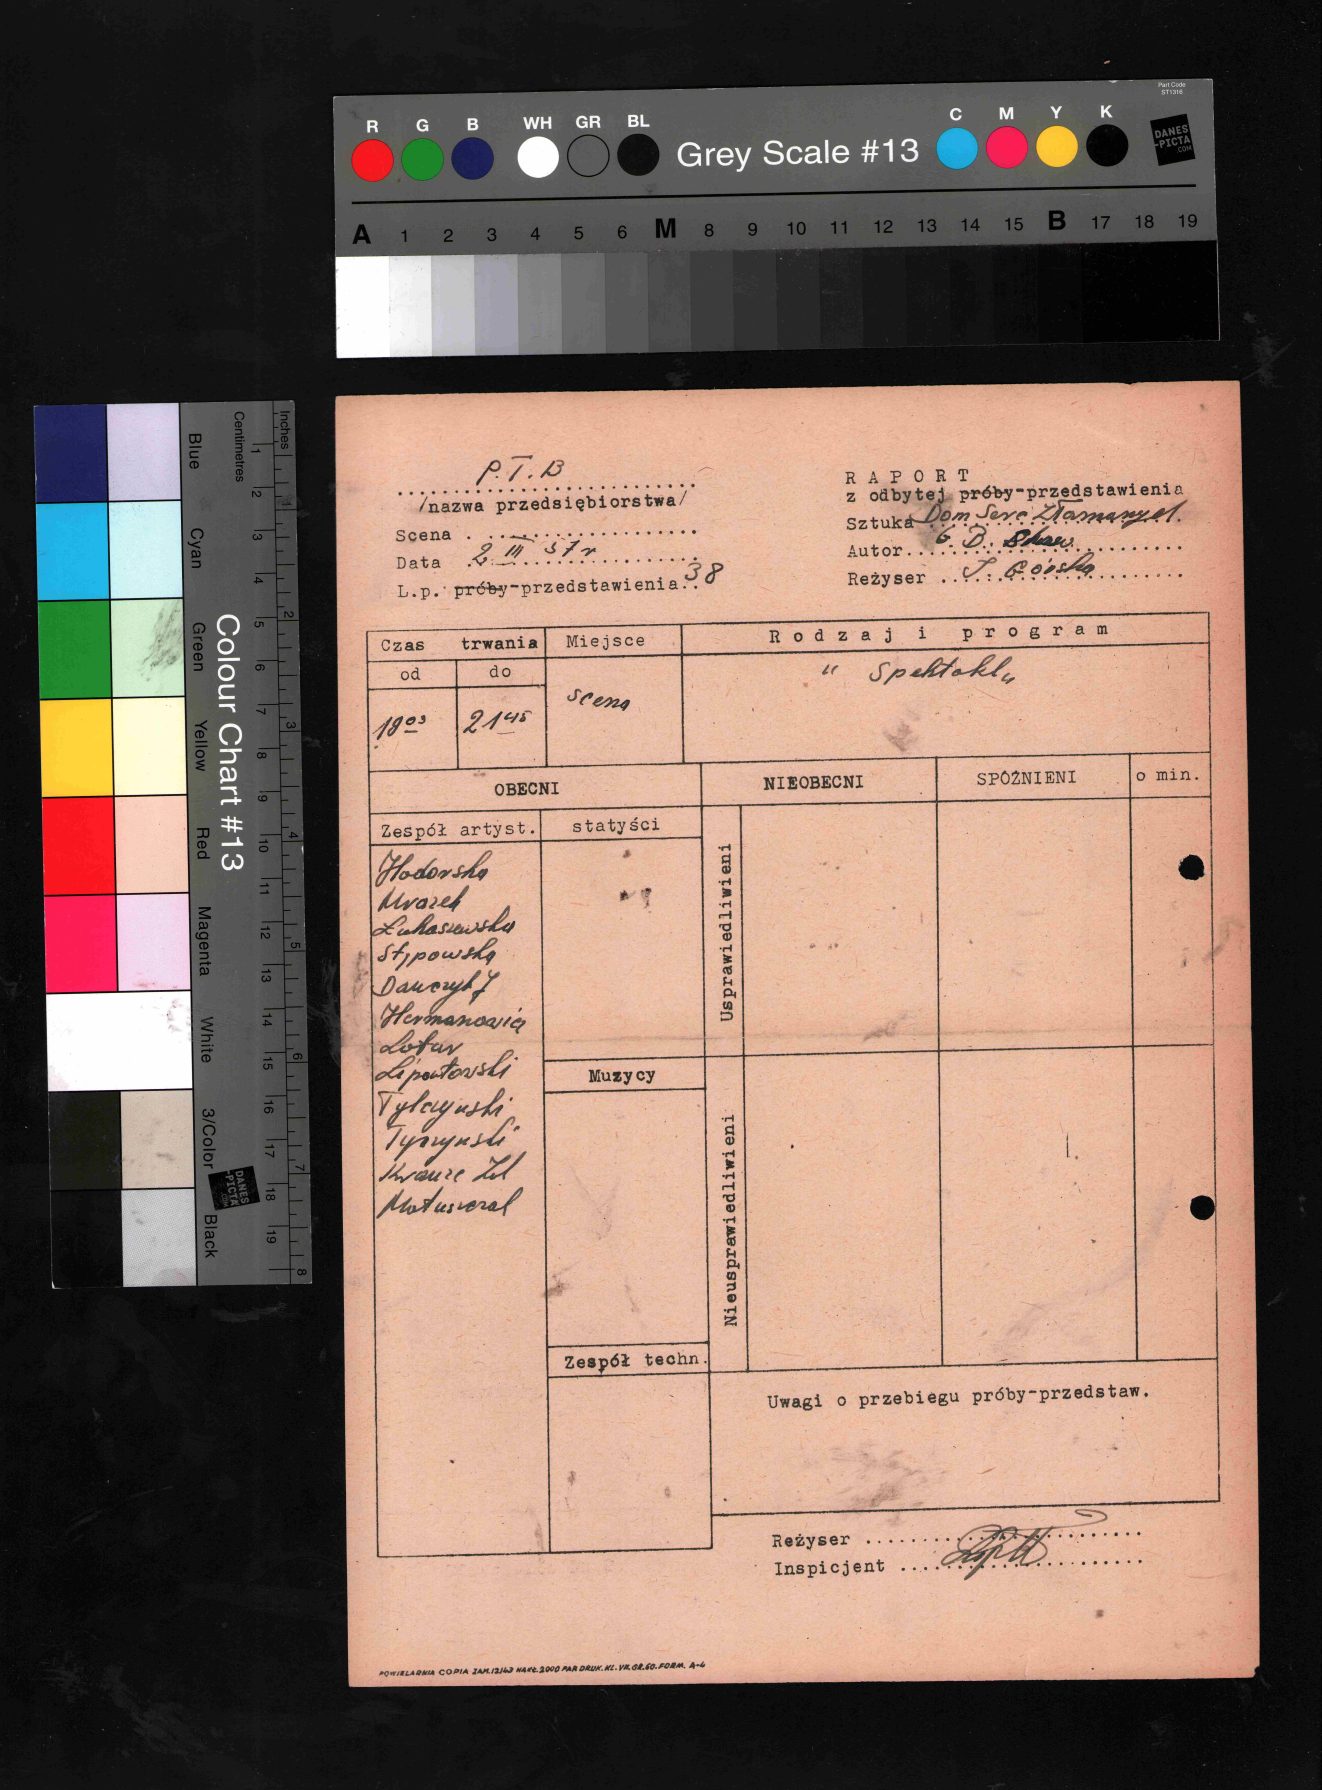 Part Code
ST1316
R G B WH GR BL Grey Scale #13 C M Y K
DANES
-PICTA
.COM
A 1 2 3 4 5 6 M 8 9 10 11 12 13 14 15 B 17 18 19
Colour Chart #13
Blue Cyan Green Yellow Red Magenta White 3/Color Black
Centimetres 1 2 3 4 5 6 7 8 9 10 11 12 13 14 15 16 17 18 19
Inches 1 2 3 4 5 6 7 8
DANES
-PICTA
.COM
P.T.B
/nazwa przedsiębiorstwa/
Scena
Data 2 III 57 r
L.p. próby-przedstawienia 38
RAPORT
z odbytej próby-przedstawienia
Sztuka Dom Serc Złamanych
Autor G. B. Shaw
Reżyser I. Górska
Czas trwania Miejsce Rodzaj i program
od do
18 03 21 45 scena " Spektaklu
OBECNI NIEOBECNI SPÓŹNIENI o min.
Zespół artyst. statyści
Usprawiedliwieni
Hodorska
Mrozek
Łukaszewska
Stypowska
Danczyk J
Hermanowicz
Lotar
Lipatowski
Tylczyński
Tyczyński
Krauze Zd
Matuszczak
Muzycy
Nieusprawiedliwieni
Zespół techn.
Uwagi o przebiegu próby-przedstaw.
Reżyser
Inspicjent
POWIELARNIA COPIA ZAM.12143 NAKŁ.2000 PAP. DRUK. KL. VII. GR. 60. FORM. A-4